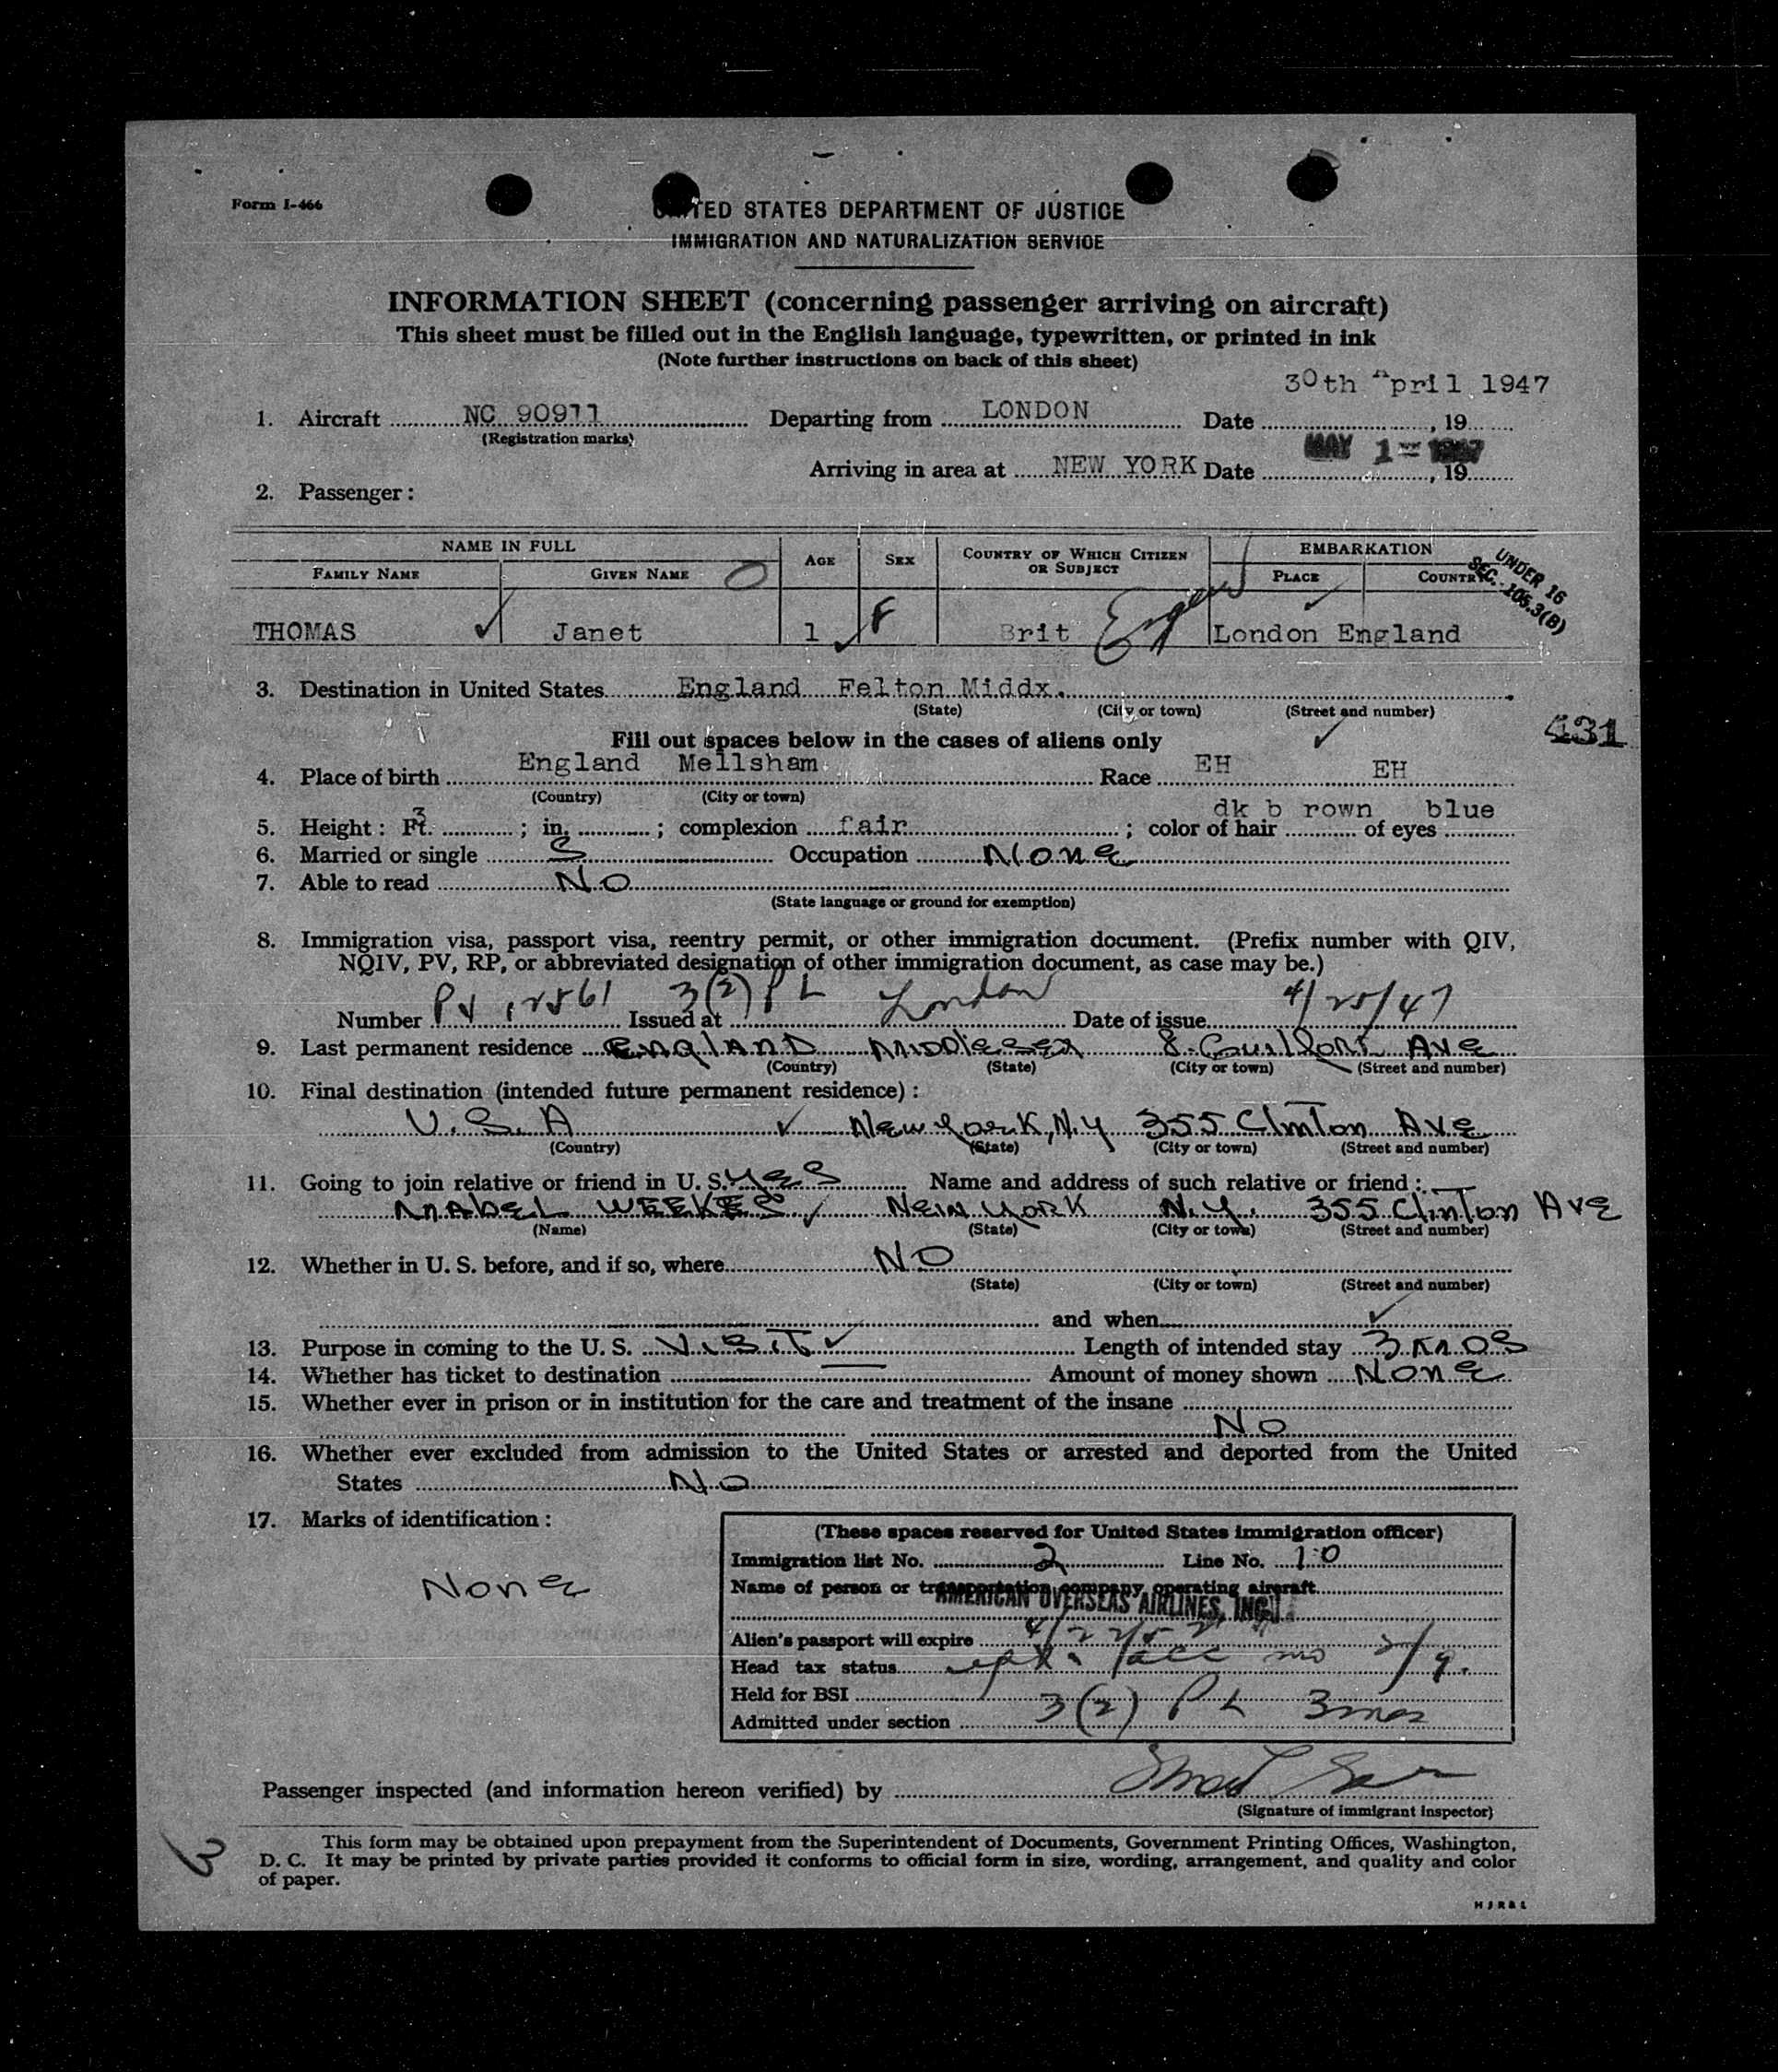 Form I-466
UNITED STATES DEPARTMENT OF JUSTICE
IMMIGRATION AND NATURALIZATION SERVICE
INFORMATION SHEET (concerning passenger arriving on aircraft)
This sheet must be filled out in the English language, typewritten, or printed in ink
(Note further instructions on back of this sheet)
30th April 1947
1. Aircraft NC 90911 Departing from LONDON Date , 19
(Registration marks)
MAY 1 - 1947
Arriving in area at NEW YORK Date , 19
2. Passenger:
NAME IN FULL AGE SEX COUNTRY OF WHICH CITIZEN OR SUBJECT EMBARKATION
FAMILY NAME GIVEN NAME PLACE COUNTRY
UNDER 16
SEC. 105.3(B)
THOMAS Janet 1 F Brit London England
3. Destination in United States England Felton Middx.
(State) (City or town) (Street and number)
431
Fill out spaces below in the cases of aliens only
4. Place of birth England Mellsham Race EH EH
(Country) (City or town)
dk b rown blue
5. Height: Ft. 3 ; in. ; complexion fair ; color of hair of eyes
6. Married or single S Occupation None
7. Able to read NO
(State language or ground for exemption)
8. Immigration visa, passport visa, reentry permit, or other immigration document. (Prefix number with QIV,
NQIV, PV, RP, or abbreviated designation of other immigration document, as case may be.)
Number PV 12561 3(2) PL Issued at London Date of issue 4/25/47
9. Last permanent residence ENGLAND MIDDLESEX 8 Ave
(Country) (State) (City or town) (Street and number)
10. Final destination (intended future permanent residence):
U.S.A New York, N.Y 355 Clinton Ave
(Country) (State) (City or town) (Street and number)
11. Going to join relative or friend in U. S. Yes Name and address of such relative or friend:
MABEL WEEKES New York N.Y. 355 Clinton Ave
(Name) (State) (City or town) (Street and number)
12. Whether in U. S. before, and if so, where NO
(State) (City or town) (Street and number)
and when
13. Purpose in coming to the U. S. VISIT Length of intended stay 3 MOS
14. Whether has ticket to destination Amount of money shown None
15. Whether ever in prison or in institution for the care and treatment of the insane
NO
16. Whether ever excluded from admission to the United States or arrested and deported from the United
States NO
17. Marks of identification:
None
(These spaces reserved for United States immigration officer)
Immigration list No. 2 Line No. 10
Name of person or transportation company operating aircraft
AMERICAN OVERSEAS AIRLINES, INC.
Alien's passport will expire 4/22/52
Head tax status
Held for BSI
Admitted under section 3(2) PL 3 mos
Passenger inspected (and information hereon verified) by
(Signature of immigrant inspector)
This form may be obtained upon prepayment from the Superintendent of Documents, Government Printing Offices, Washington,
D. C. It may be printed by private parties provided it conforms to official form in size, wording, arrangement, and quality and color
of paper.
3